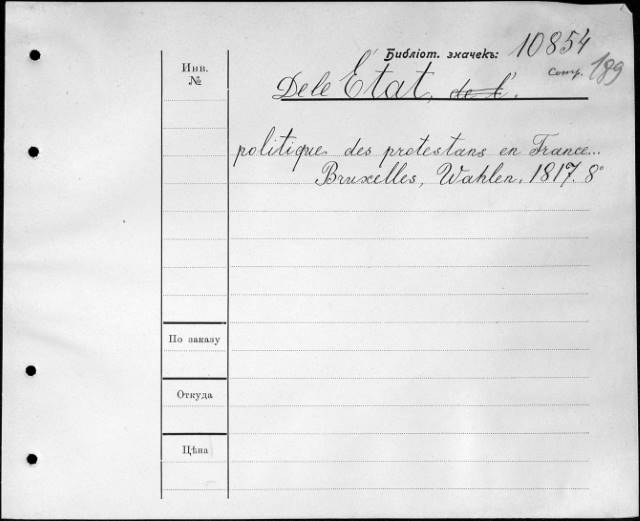 Библіот. значекъ: 10854
Инв.
№
Comp. 189
De l'Etat, de l'.
politique des protestans en France...
Bruxelles, Wahlen, 1817. 8°
По заказу
Откуда
Цѣна